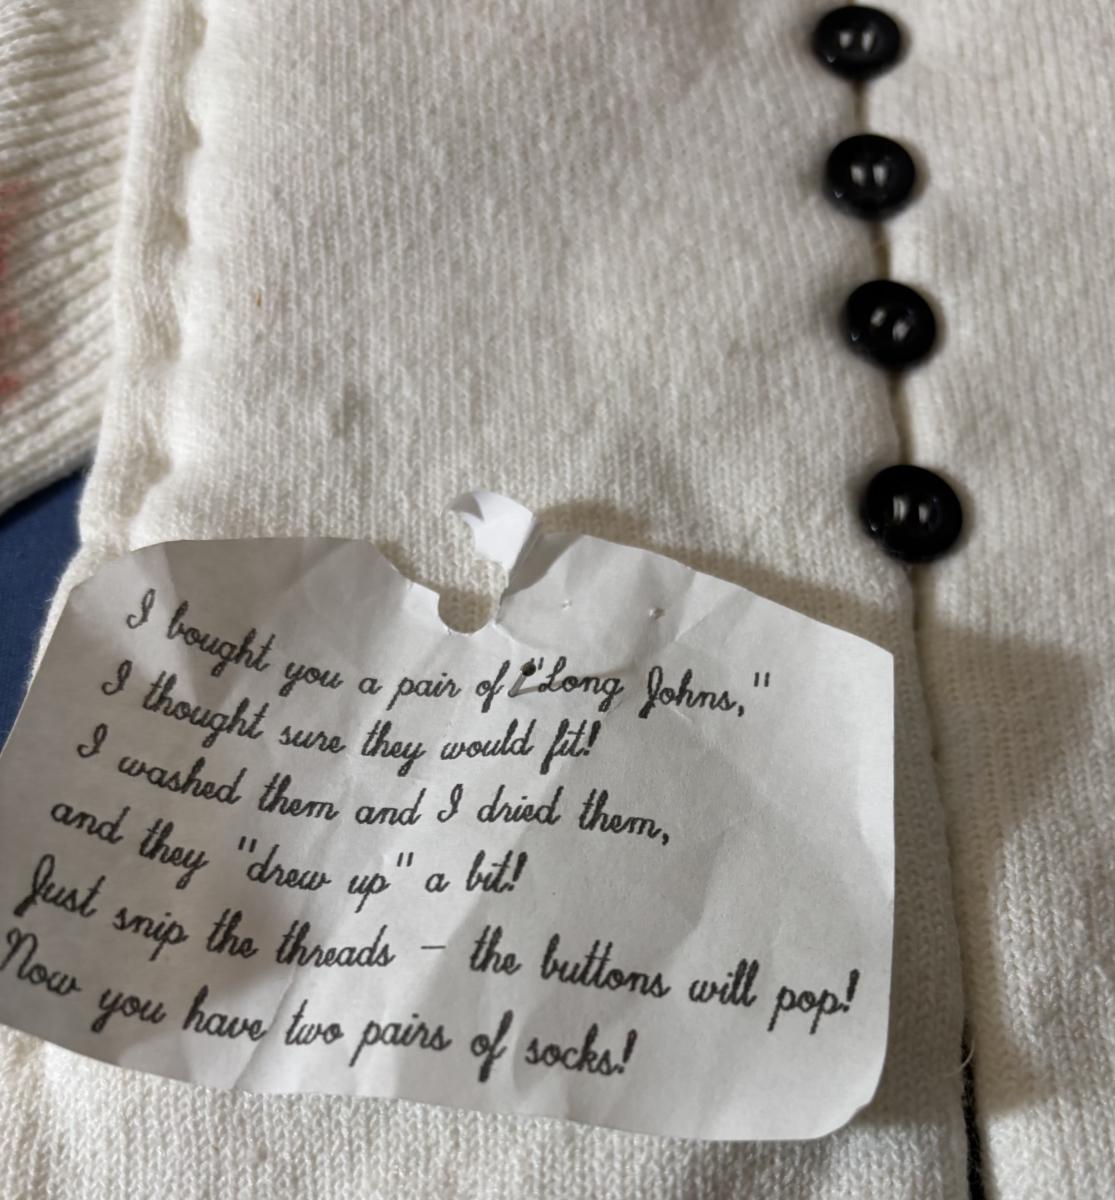 I bought you a pair of "Long Johns,"
I thought sure they would fit!
I washed them and I dried them,
and they "drew up" a bit!
Just snip the threads – the buttons will pop!
Now you have two pairs of socks!